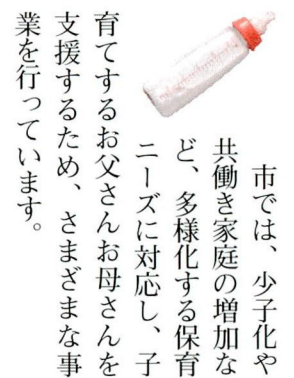 市では、少子化や
共働き家庭の増加な
ど、多様化する保育
ニーズに対応し、子
育てするお父さんお母さんを
支援するため、さまざまな事
業を行っています。